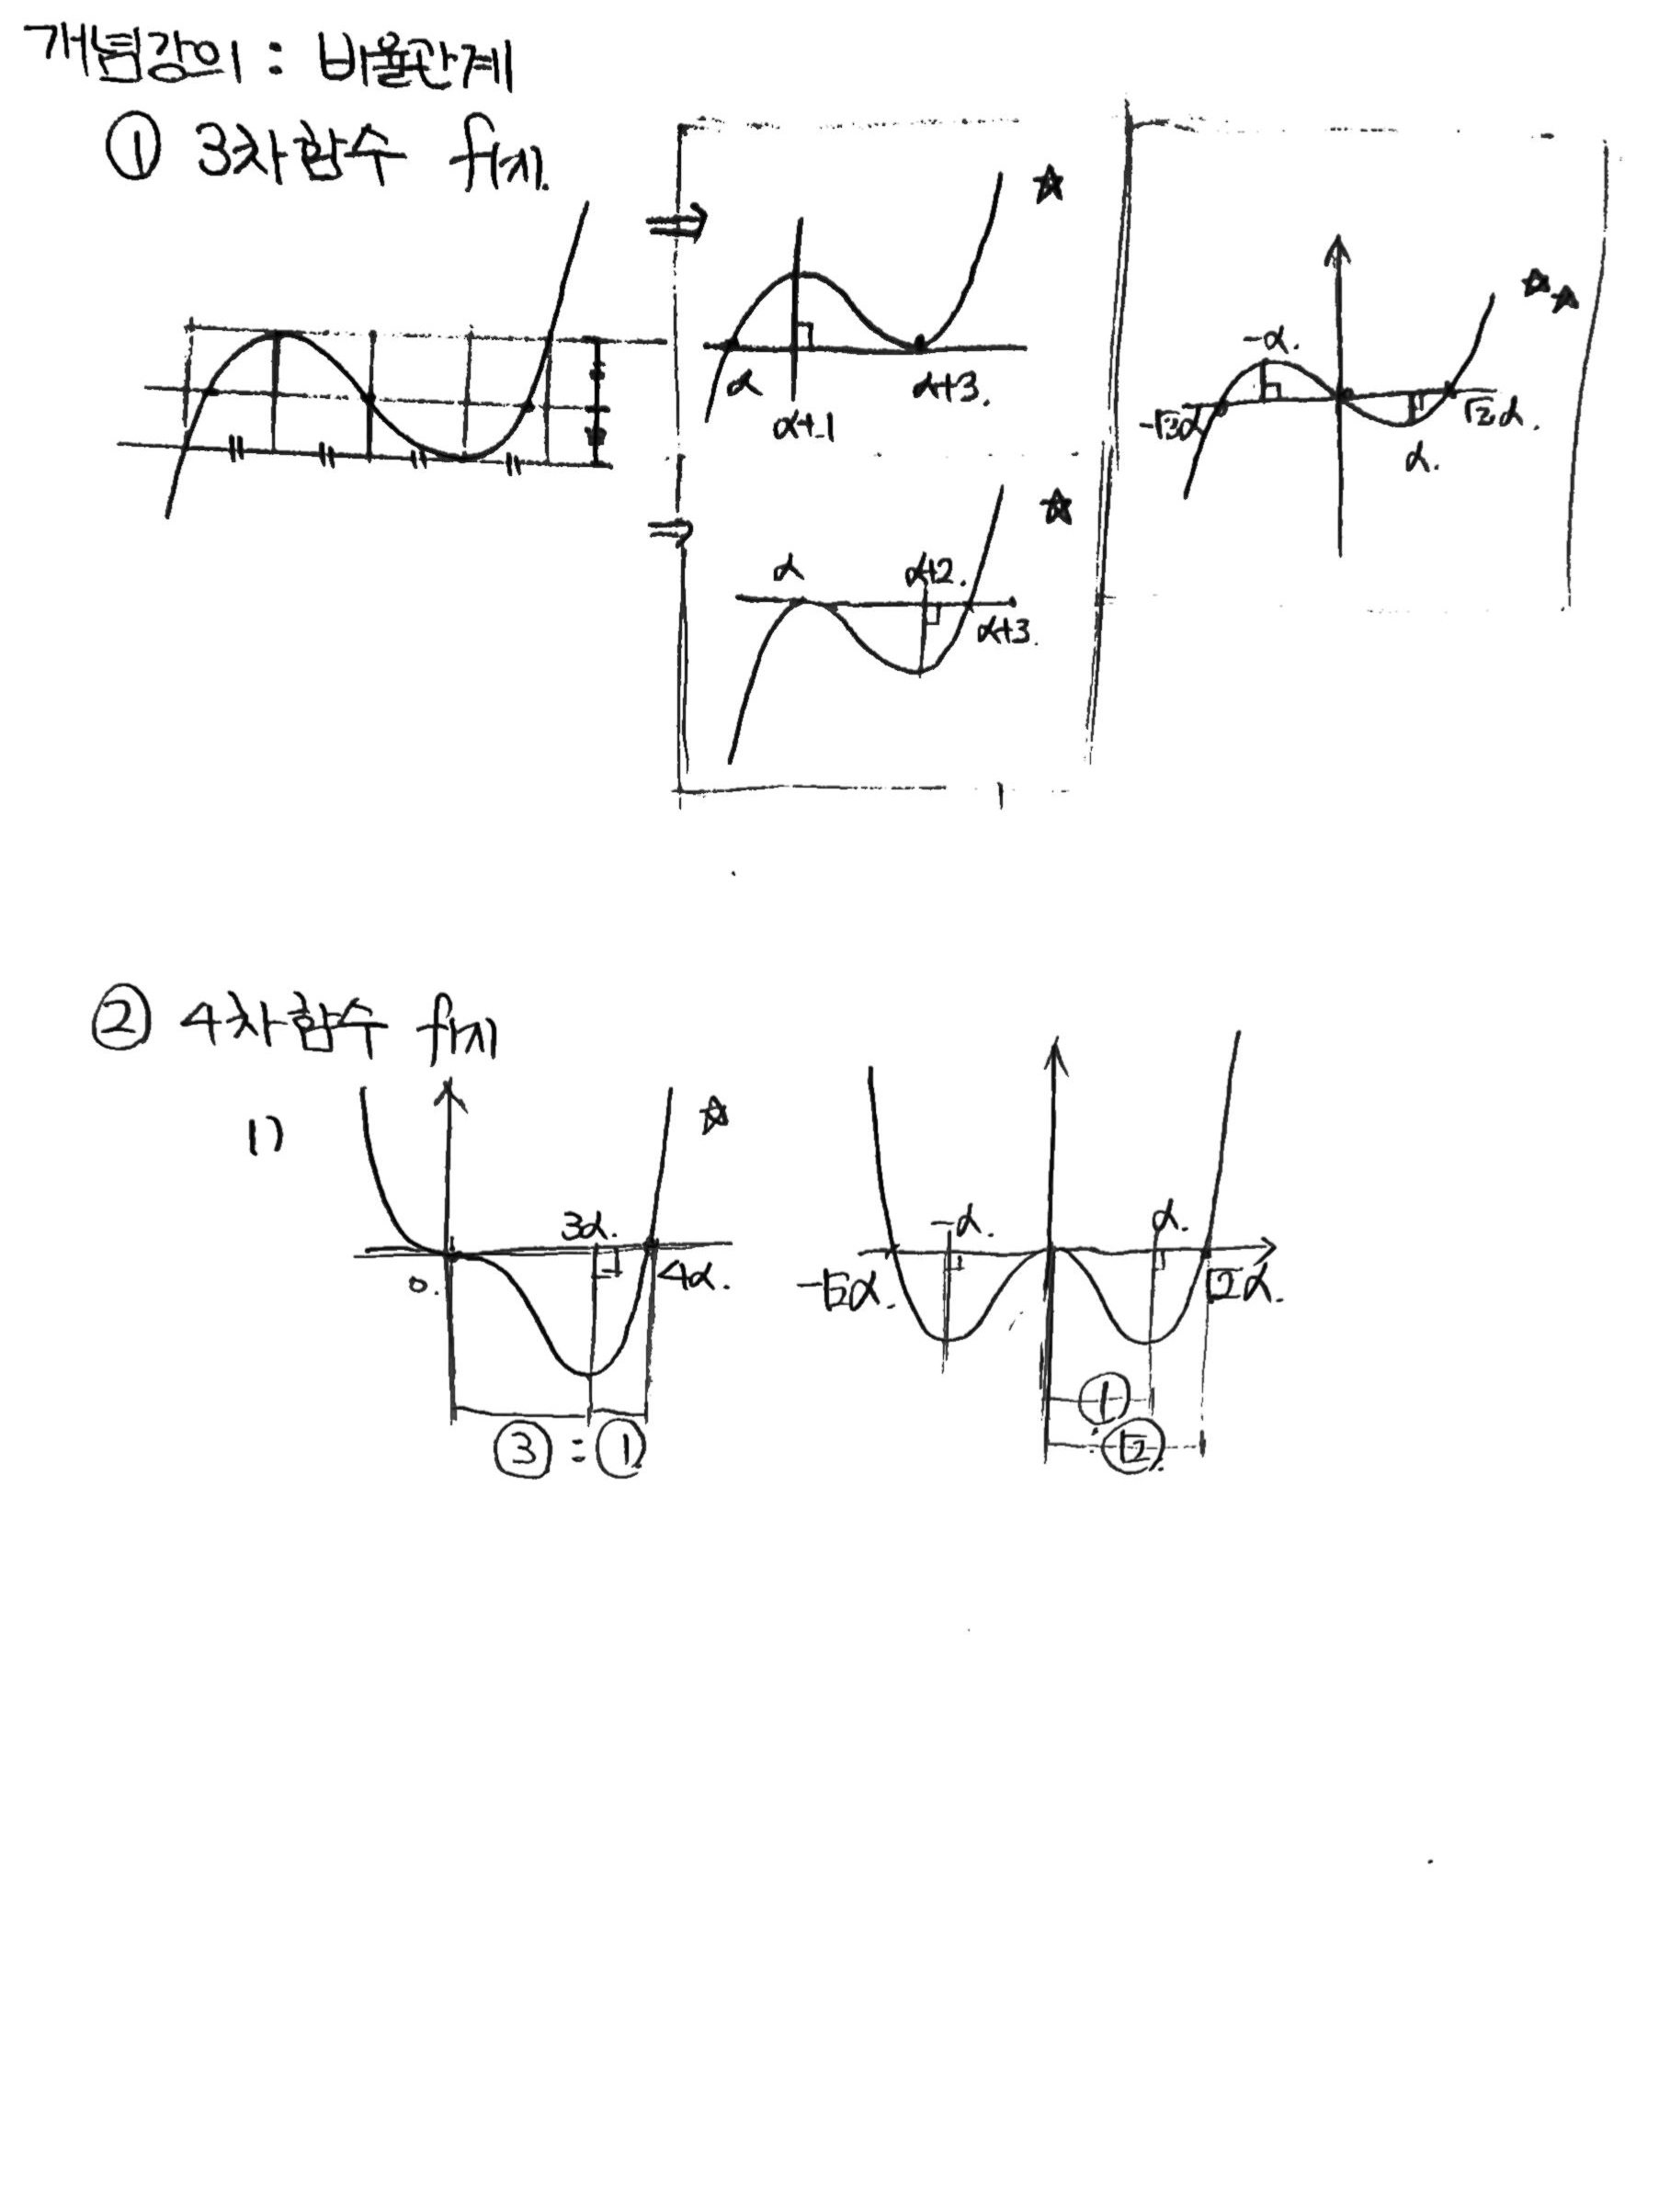 개념강의 : 비율관계
① 3차함수 f(x).
⇒
α
α+1
α+3.
⇒
α
α+2.
α+3.
-α.
-√3α
√3α.
α.
② 4차함수 f(x)
1)
3α.
0.
4α.
③ : ①
-α.
α.
-√2α.
√2α.
①
: √2.